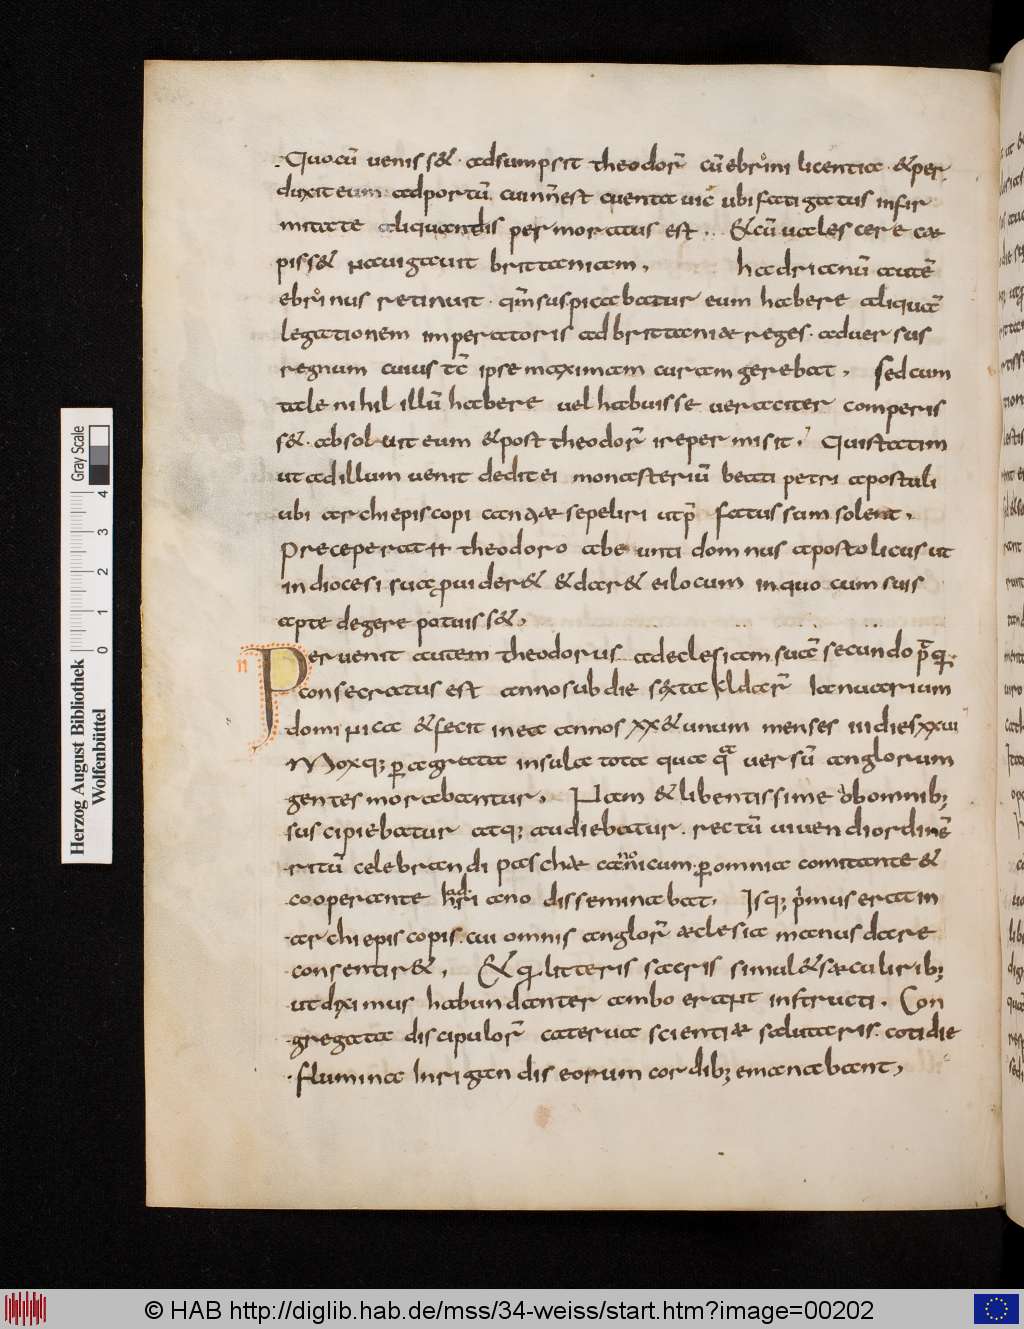 Quocū uenisset · adsumpsit theodor̄ cū ebrini licentia · & per
duxit eum ad portū cui nn̄ est cuenta uic̄ ubi fatigatus infir
mitate aliquandis per moratus est . & cū ualescere cae
pisset nauigauit brittaniam , hadrianū autē
ebrinus retinuit · qm̄ suspicabatur eum habere aliquā
legationem imperatoris ad brittaniæ reges · aduersus
regnum cuius tc̄ ipse maximam curam gerebat , sed cum
tale nihil illū habere uel habuisse ueraciter comperis
set · absoluit eum & post theodor̄ ire permisit , Qui statim
ut ad illum uenit dedit ei monasteriū beati petri apostuli
ubi archiepiscopi sepeliri utp̄ fatus sum solent ,
preceperat theodoro abeunti domnus apostolicus ut
in diocesi sua puider& & dar& ei locum in quo cum suis
apte degere potuisset ,
Peruenit autem theodorus ad eclesiam suā secundo
consecratus est anno sub die sexta kldar̄ ianuarium
dominica & fecit in ea annos xx & unum menses iii dies xxui
Moxq; pagrata insula tota qua uersū anglorum
gentes morabantur , Nam & libentissime ab omnib;
suscipiebatur atq; audiebatur . rectū uiuendi ordinē
ritū celebrandi paschæ canonicum p omnia comitante &
cooperante hadriano disseminabat , Isq; primus erat in
archiepiscopis . cui omnis anglor̄ æclesia manus dare
consentir& , Et q litteris sacris simul & sæculirib;
ut diximus habundanter ambo erant instructi . Con
gregata discipulor̄ caterua scientiæ salutaris . cotidie
flumina Inrigandis eorum cordib; emanabant ,
n
Herzog August Bibliothek
Wolfenbüttel
Gray Scale
0 1 2 3 4
© HAB http://diglib.hab.de/mss/34-weiss/start.htm?image=00202